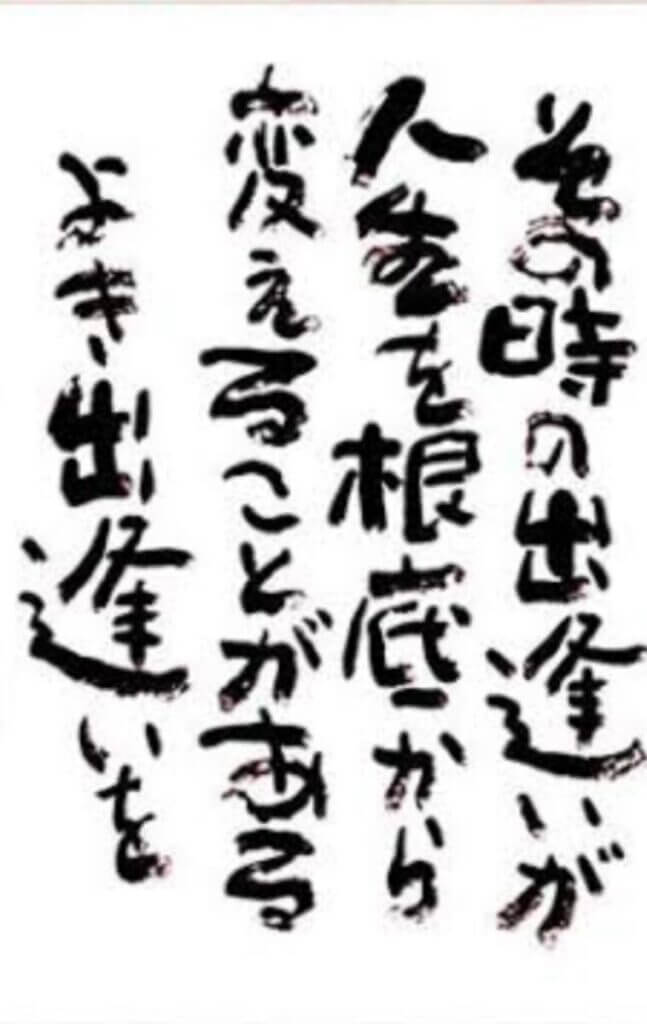 その時の出逢いが
人生を根底から
変えることがある
よき出逢いを